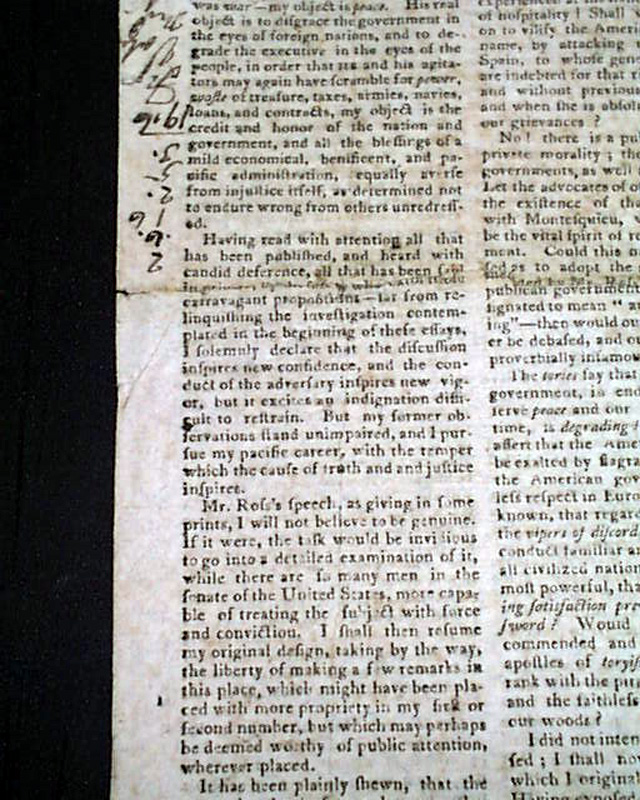 was war—my object is peace. His real
object is to disgrace the government in
the eyes of foreign nations, and to de-
grade the executive in the eyes of the
people, in order that its and his agita-
tors may again have scramble for power,
waste of treasure, taxes, armies, navies,
loans, and contracts, my object is the
credit and honor of the nation and
government, and all the blessings of a
mild economical, benificent, and pa-
cific administration, equally averse
from injustice itself, as determined not
to endure wrong from others unredress-
ed.
Having read with attention all that
has been published, and heard with
candid deference, all that has been said
extravagant propositions—far from re-
linquishing the investigation contem-
plated in the beginning of these essays,
I solemnly declare that the discussion
inspires new confidence, and the con-
duct of the adversary inspires new vig-
or, but it excites an indignation diffi-
cult to restrain. But my former ob-
servations stand unimpaired, and I pur-
sue my pacific career, with the temper
which the cause of truth and and justice
inspires.
Mr. Ross's speech, as giving in some
prints, I will not believe to be genuine.
If it were, the task would be invidious
to go into a detailed examination of it,
while there are so many men in the
senate of the United States, more capa-
ble of treating the subject with force
and conviction. I shall then resume
my original design, taking by the way,
the liberty of making a few remarks in
this place, which might have been pla-
ced with more propriety in my first or
second number, but which may perhaps
be deemed worthy of public attention,
wherever placed.
It has been plainly shewn, that the
of hospitality! Shall
on to vilify the Ameri
name, by attacking
Spain, to whose gene
are indebted for that
and without previous
and when she is absol
our grievances?
No! there is a pu
private morality; th
governments, as well
Let the advocates of o
the existence of tha
with Montesquieu,
be the vital spirit of re
ment. Could this n
to adopt the
publican government
signated to mean "a
ing"—then would ou
er be debased, and ou
proverbially infamou
The tories say that
government, in end
serve peace and our
time, is degrading
assert that the Ame
be exalted by flagra
the American gov
less respect in Euro
known, that regard
the vipers of discord
conduct familiar a
all civilized nation
most powerful, tha
ing satisfaction pre
sword? Would
commended and
apostles of toryis
rank with the pira
and the faithless
our woods?
I did not inten
sed; I shall now
which I original
Having exposed